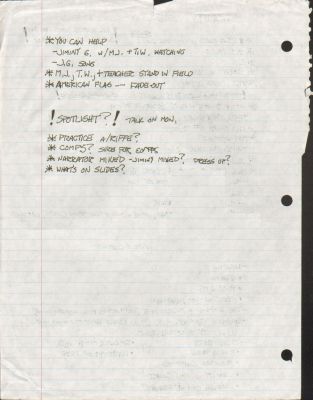 * YOU CAN HELP
- JIMINY G. W/ M.J. + T.W. WATCHING
- J.G. SONG
* M.J., T.W., + TEACHER STAND IN FIELD
* AMERICAN FLAG — FADE OUT
! SPOTLIGHT? ! TALK ON MON.
* PRACTICE A/RIFFE?
* COMPS? SIRS FOR
* NARRATOR MIKED - JIMINY MIKED? DRESS UP?
* WHAT'S ON SLIDES?